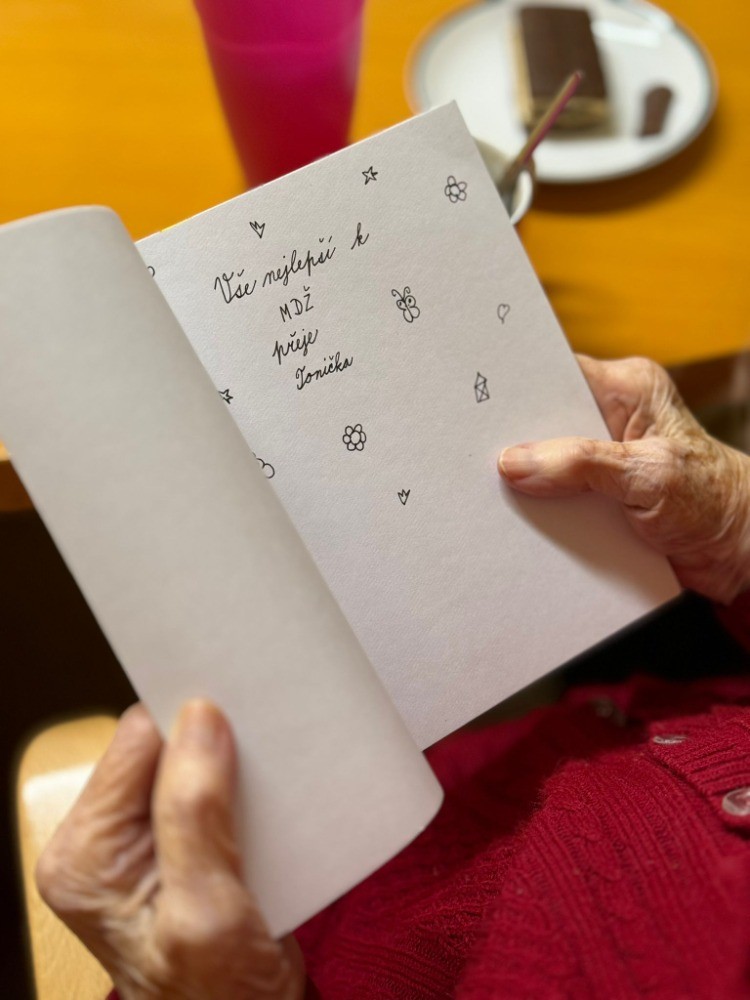 Vše nejlepší k
MDŽ
přeje
Tonička